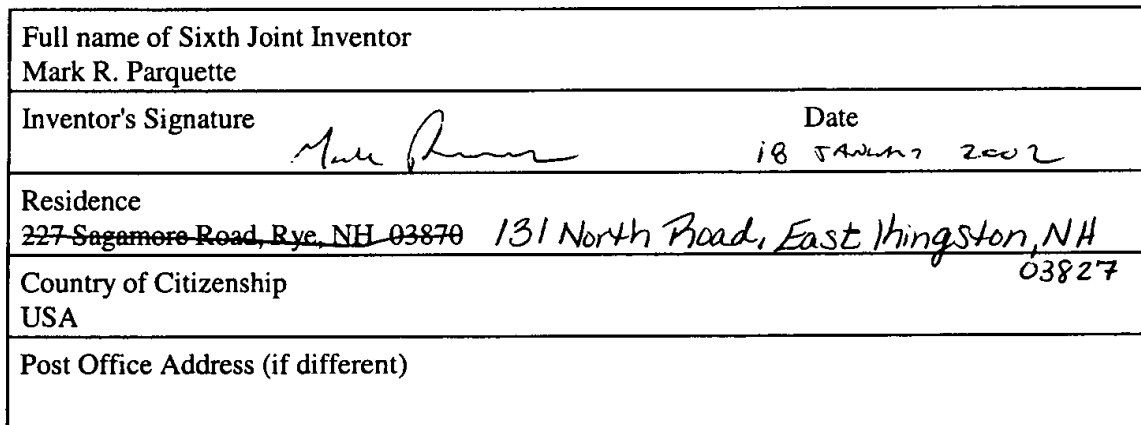 Full name of Sixth Joint Inventor
Mark R. Parquette
Inventor's Signature Date
Mark 18 JANUARY 2002
Residence
227 Sagamore Road, Rye, NH 03870 131 North Road, East Kingston, NH
03827
Country of Citizenship
USA
Post Office Address (if different)